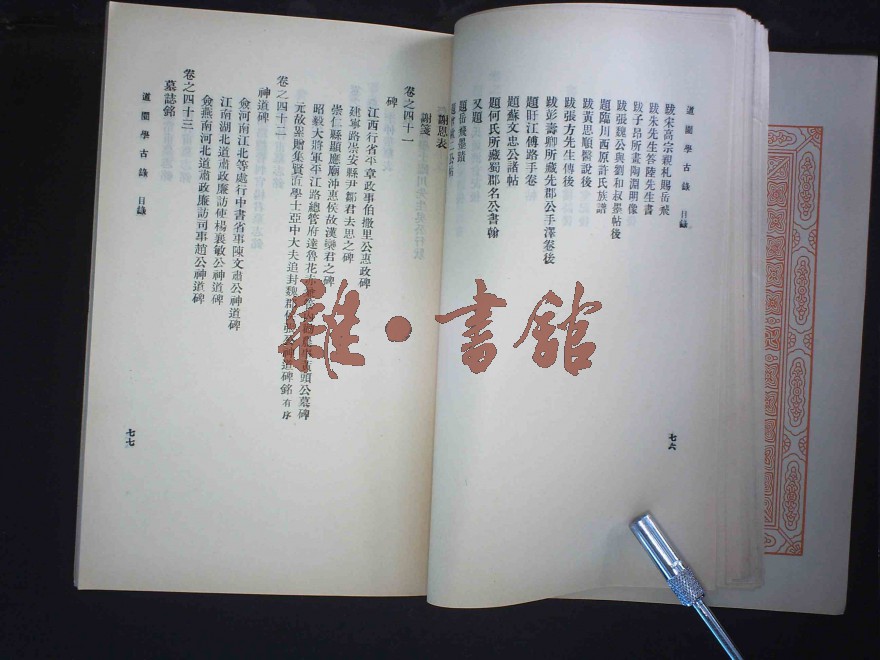 道園學古錄 目錄
跋宋高宗親札賜岳飛
跋朱先生答陸先生書
跋子昂所畫陶淵明像
跋張魏公與劉和叔墨帖後
題臨川西原許氏族譜
跋黃思順醫說後
跋張方先生傳後
跋彭壽卿所藏先郡公手澤卷後
題旴江傅路手卷
題蘇文忠公諸帖
題何氏所藏蜀郡名公書翰
又題
題岳飛墨蹟
七六
謝恩表
謝箋
卷之四十一
碑
江西行省平章政事伯撒里公惠政碑
建寧路崇安縣尹鄒君去思之碑
崇仁縣顯應廟沖惠侯故漢欒君之碑
昭毅大將軍平江路總管府達魯花赤
頭公墓碑
元故累贈集賢直學士亞中大夫追封魏郡
道碑銘有序
卷之四十二
神道碑
僉河南江北等處行中書省事陳文肅公神道碑
江南湖北道肅政廉訪使楊襄敏公神道碑
僉燕南河北道肅政廉訪司事趙公神道碑
卷之四十三
墓誌銘
道園學古錄 目錄
七七
雜·書館